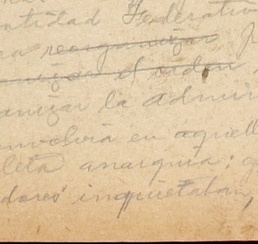 ntidad Federativ
ea reorganizar p
el orden
anizar la admin
envolvia en aquell
leta anarquia: g
dores inquietaban,